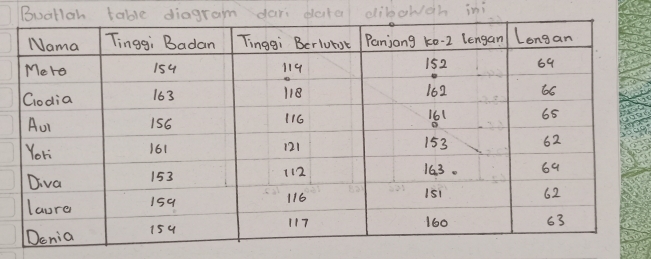 Buatlah table diagram dari data dibawah ini
Nama Tinggi Badan Tinggi Berlutut Panjang ke-2 lengan Lengan
Meto 154 114 152 64
Clodia 163 118 162 66
Avi 156 116 161 65
Yoti 161 121 153 62
Diva 153 112 163 64
laura 154 116 151 62
Denia 154 117 160 63